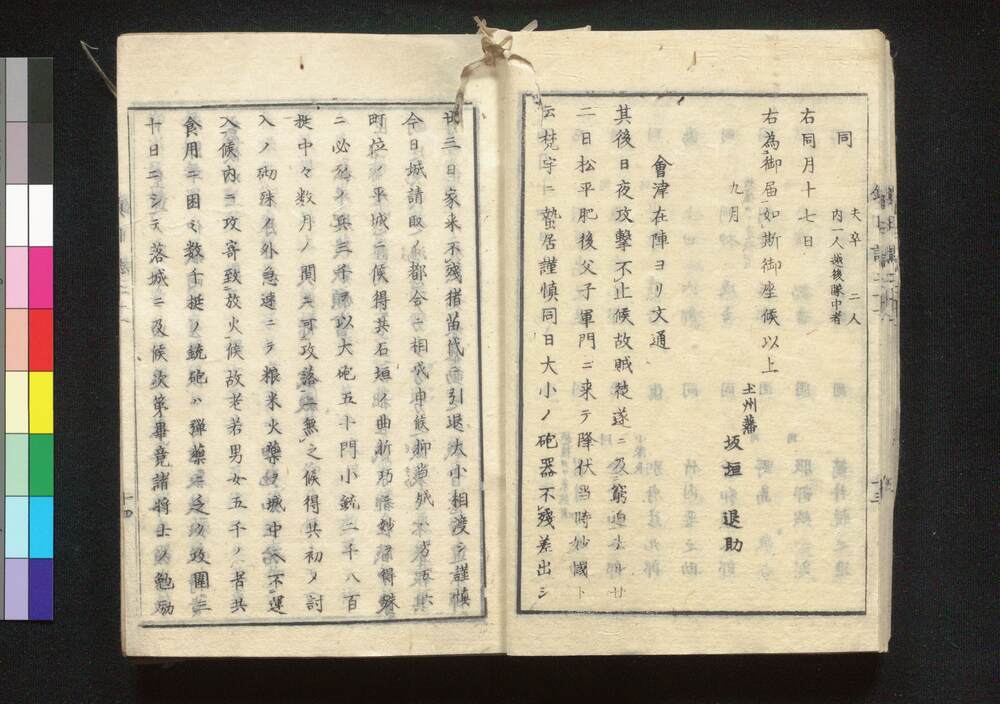 同 夫卒 二人
内一人越後隊中者
右同月十七日
右為御届如斯御座候以上
九月 土州藩
坂垣退助
會津在陣ヨリ文通
其後日夜攻擊不止候故賊徒遂ニ及窮迫去月廿
二日松平肥後父子軍門ニ来テ降伏当時妙國ト
云梵宇ニ蟄居謹慎同日大小ノ砲器不殘差出シ
廿三日家来不殘猪苗代ニ引退大小相渡シ謹慎
今日城請取ノ都合ニ相成申候抑当城ハ方五六
町位ノ平城ニ候得共石垣ノ曲折巧ミ妙ヲ得殊
ニ必死ノ兵三千ヲ以大砲五十門小銃二千八百
挺中々数月ノ間ニ可攻落無之候得共初メ討
入ノ砌殊ノ外急速ニテ粮米火藥々城中ヘ不運
入候内ニ攻寄致放火候故老若男女五千ノ者共
食用ニ困ミ数千挺ノ銃砲ハ弾藥ニ乏攻圍三
十日ニシテ落城ニ及候次第畢竟諸将士ノ勉励
十三
十四